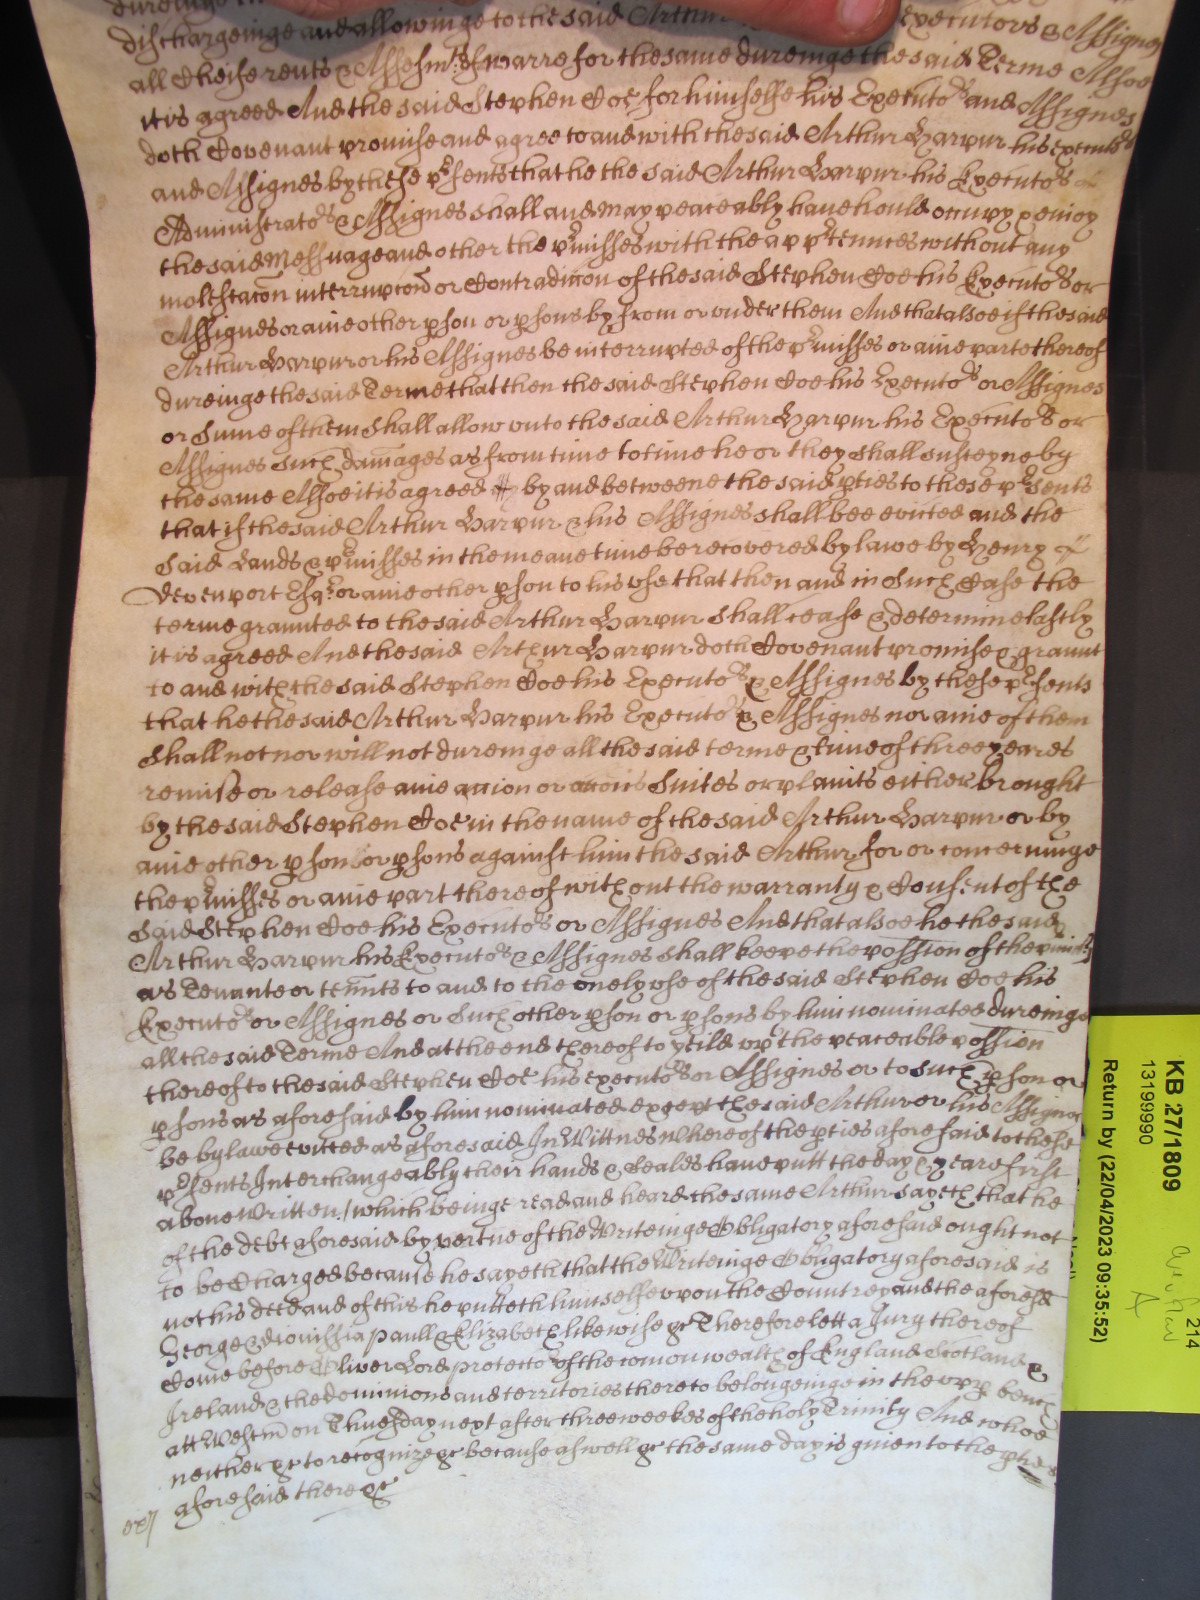 dureinge
dischargeinge and allowinge to the said Arthur executors & Assignes
all Cheife rents & Assesmts of warre for the same dureinge the said Terme Alsoe
it is agreed And the said Stephen Coe for himselfe his Executors and Assignes
doth Covenant promise and agree to and with the said Arthur Harpur his executors
and Assignes by these prsents that he the said Arthur Harpur his Executors
Administrators & Assignes shall and may peaceably have hould occupy & enioy
the said Messuage and other the prmisses with the apprtennces without any
molestacon interrupcon or Contradicon of the said Stephen Coe his Executors or
Assignes or anie other pson or psons by from or under them And that alsoe if the said
Arthur Harpur or his Assignes be interrupted of the prmisses or anie parte thereof
dureinge the said Terme that then the said Stephen Coe his Executors or Assignes
or Sume of them Shall allow unto the said Arthur Harpur his Executors or
Assignes Such damages as from time to time he or they Shall susteyne by
the same Alsoe it is agreed by and betweene the said pties to these prsents
that if the said Arthur Harpur & his Assignes shall bee evicted and the
Said Lands & prmisses in the meane time be recovered by lawe by Henry
Devenport Esqr or anie other pson to his use that then and in Such Case the
terme graunted to the said Arthur Harpur Shall cease & determine lastly
it is agreed And the said Arthur Harpur doth Covenant promise & graunt
to and with the said Stephen Coe his Executors & Assignes by these prsents
that he the said Arthur Harpur his Executors & Assignes nor anie of them
Shall not nor will not dureinge all the said terme & time of three yeares
remise or release anie accion or accons Suites or plaints either brought
by the said Stephen Coe in the name of the said Arthur Harpur or by
anie other pson or psons against him the said Arthur for or concerninge
the prmisses or anie part thereof without the warranty & Consent of the
Said Stephen Coe his Executors or Assignes And that alsoe he the said
Arthur Harpur his Executors & Assignes shall keepe the possion of the prmiss
as Tenante or tennts to and to the onely use of the said Stephen Coe his
Executors or Assignes or Such other pson or psons by him nominated dureinge
all the said Terme And at the end thereof to yeild upp the peaceable possion
thereof to the said Stephen Coe his executors or Assignes or to such pson or
psons as aforesaid by him nominated except the said Arthur or his Assignes
be by lawe evicted as aforesaid In Wittnes whereof the pties aforesaid to these
prsents Interchangeably their hands & Seales have putt the day & yeare first
above written / which beinge read and heard the same Arthur sayeth that he
of the debt aforesaid by vertue of the Writeinge Obligatory aforesaid ought not
to be Charged because he sayeth that the Writeinge Obligatory aforesaid is
not his deed and of this he putteth himselfe upon the Countrey and the aforesd
George & dionissia paull & Elizabeth likewise &c Therefore lett a Jury thereof
Come before Oliver Lord protector of the comonwealth of England Scotland &
Ireland & the dominions and territories thereto belongeinge in the upp bench
att Westm on Thuesday next after three weekes of the holy Trinity And whoe
neither &c to recognize &c because aswell &c the same day is given to the pties
aforesaid there &c
KB 27/1809
13199990
Return by (22/04/2023 09:35:52)
214
A